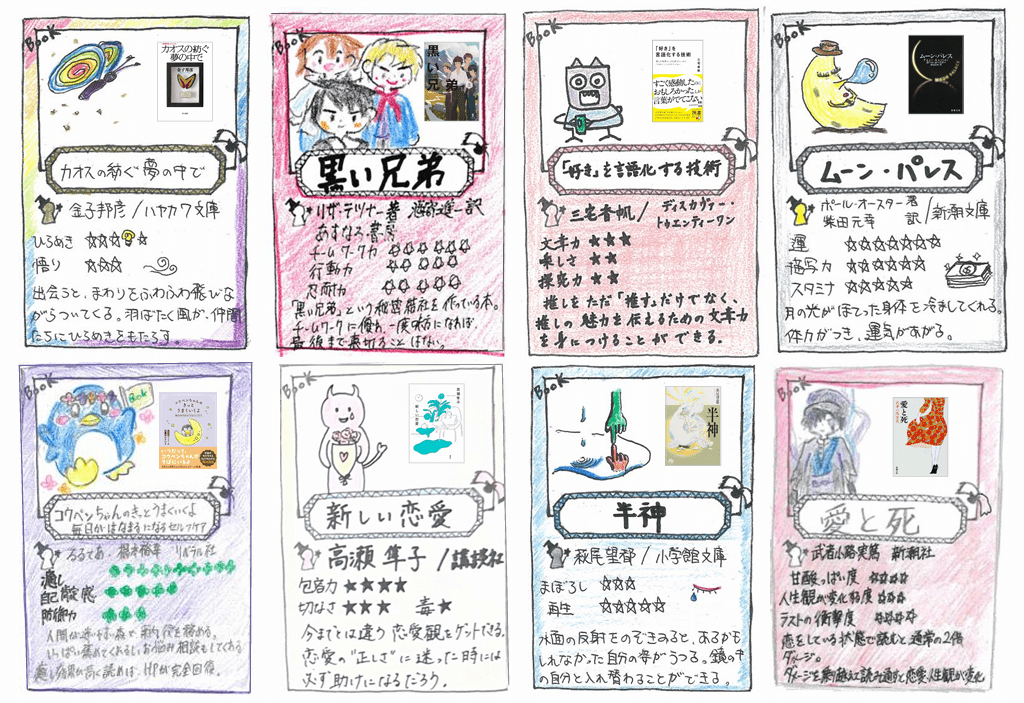 Book
カオスの紡ぐ
夢の中で
金子邦彦
カオスの紡ぐ夢の中で
金子邦彦/ハヤカワ文庫
ひらめき ☆☆☆☆
悟り ☆☆☆
出会うと、まわりをふわふわ飛びな
がらついてくる。羽ばたく風が、仲間
たちにひらめきをもたらす。
Book
黒い兄弟
黒い兄弟
リザ・テツナー著 酒寄進一訳
あすなろ書房
チームワーク力 ☆☆☆☆☆
行動力 ☆☆☆☆☆
忍耐力 ☆☆☆☆☆
「黒い兄弟」という秘密結社を作っている本。
チームワークに優れ、一度味方になれば、
最後まで裏切ることはない。
Book
「好き」を
言語化する技術
すごく感動した
おもしろかった
言葉がでてこない
「好き」を言語化する技術
三宅香帆/ディスカヴァー・
トゥエンティーワン
文章力 ★★★
楽しさ ★★
探究力 ★★
推しをただ「推す」だけでなく、
推しの魅力を伝えるための文章力
を身につけることができる。
Book
ムーン・パレス
MOON PALACE
ムーン・パレス
ポール・オースター著
柴田元幸 訳/新潮文庫
運 ☆☆☆☆☆☆☆
描写力 ☆☆☆☆☆☆
スタミナ ☆☆☆☆☆
月の光がほてった身体を冷ましてくれる。
体力がつき、運気があがる。
Book
Book
コウペンちゃんの
きっと
うまくいくよ
コウペンちゃんのきっとうまくいくよ
毎日がはなまるになるセルフケア
るるてあ 橋本裕幸 リベラル社
癒し
自己肯定感
防御力
Book
新しい恋愛
新しい恋愛
高瀬隼子/講談社
包容力 ★★★★
切なさ ★★★ 毒★
今までとは違う恋愛観をゲットできる。
恋愛の"正しさ"に迷った時には
必ず助けになるだろう。
Book
半神
半神
萩尾望都/小学館文庫
まぼろし ☆☆☆
再生 ☆☆☆☆☆
水面の反射をのぞきみると、あるかも
しれなかった自分の姿がうつる。鏡の中
の自分と入れ替わることができる。
Book
愛と死
愛と死
武者小路実篤 新潮社
甘酸っぱい度 ☆☆☆☆
人生観が変化る頻度 ☆☆☆
ラストの衝撃度 ☆☆☆☆
恋をしている状態で読むと通常の2倍
ダメージ。
ダメージを乗り越えて読み通すと恋愛、人生観が変化